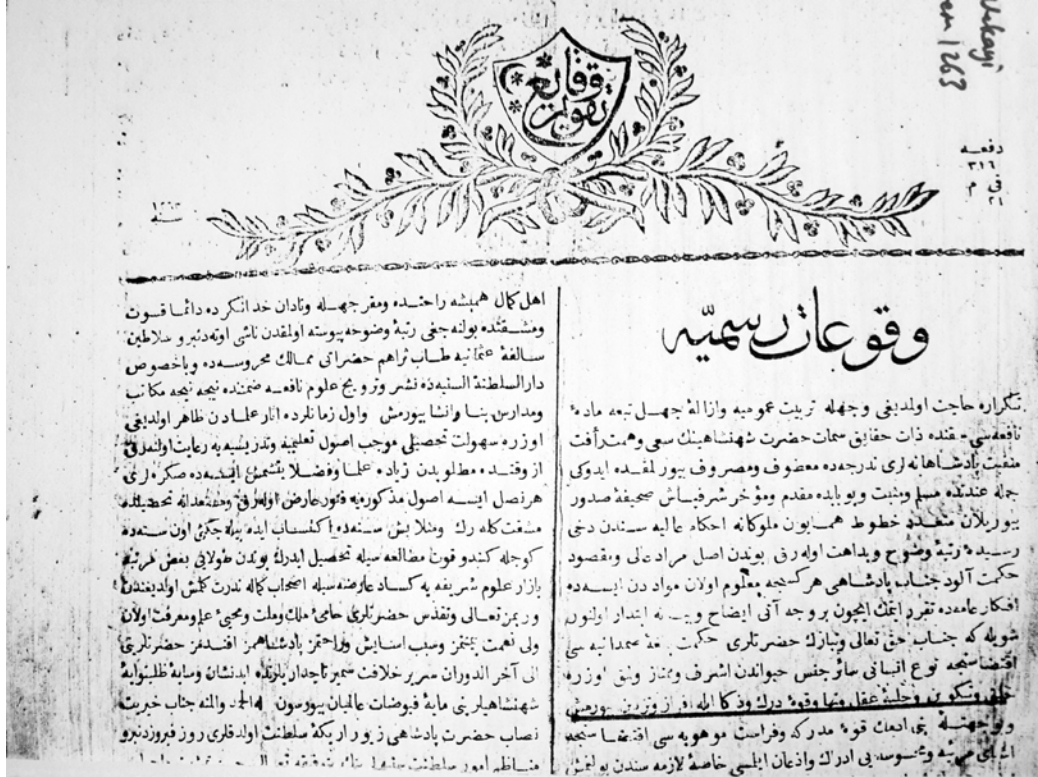 تقويم وقايع
دفعه
٣١٦
فى ٢١ م
١٢٦٣
سنه
وقوعات رسميّه
تكراره حاجت اولديغى وجهله تربيت عموميه وازالهٔ جهل تبعه مادهٔ
نافعه‌سى حقنده ذات حقايق سمات حضرت شهنشاهينك سعى وهمت رأفت
منقبت پادشاهانه‌لرى ندرجه‌ده معضوف ومصروف بيورلمقده ايدوكى
جمله عندنده مسلم ومثبت وبو بابده مقدم ومؤخر شرفپاش صحيفهٔ صدور
بيوريلان متعدد خطوط همايون ملوكانه احكام عاليه سندن دخى
رسيدهٔ رتبهٔ وضوح وبداهت اوله‌رق بوندن اصل مراد عالى ومقصود
حكمت آلود جناب پادشاهى هر كسجه معلوم اولان مواددن ايسه‌ده
افكار عامه‌ده تقرر ايتمك ايچون بر وجه آتى ايضاح وبيانه ابتدار اولنور
شويله كه جناب حق تعالى وتبارك حضرتلرى حكمت صمدانيه سى
اقتضاسنجه نوع انسانى سائر جنس حيواندن اشرف وممتاز اوزره
خلق وتكوين وحليهٔ عقل ونها وقوهٔ درك وذكا ايله افراز وتزيين بيورمش
وبو جهتله بنى آدمك قوهٔ مدركه وفراست موهوبه سى اقتضاسنجه
ادراك واذعان ايلمسى خاصهٔ لازمه سندن بولنمش
اهل كمال هميشه راحتده ومقر جهله ونادان خدانكرده دائما قسوت
ومشقتده بولنه جغى رتبهٔ وضوحه پيوسته اولمقدن ناشى اوته‌دنبرو سلاطين
سالفهٔ عثمانيه طاب ثراهم حضراتى ممالك محروسه‌ده وباخصوص
دار السلطنة السنيه‌ده نشر وترويج علوم نافعه ضمننده نيجه نيجه مكاتب
ومدارس بنا وانشا بيورمش واول زمانلرده آثار علمادن ظاهر اولديغى
اوزره سهولت تحصيلى موجب اصول تعليميه وتدريسيه‌يه رعايت اولنه‌رق
از وقتده مطلوبدن زياده علما وفضلا يتشمش ايسه‌ده صكره‌لرى
هر نصل ايسه اصول مذكوره‌يه فتور عارض اوله‌رق ومقتعدانه تحصيلده
مشقت كله‌رك ومثلا بش سنه‌ده اكتساب ايده بيله جكى اون سنه‌ده
كوجله كندو قوت مطالعه سيله تحصيل ايدرك بوندن طولايى بعض مرتبه
بازار علوم شريفه‌يه كساد عارضه‌سيله اصحاب كماله ندرت كلمش اولديغندن
وربمز تعالى وتقدس حضرتلرى حامى ملك وملت ومحيى علم ومعرفت اولان
ولى نعمت بيمنتمز وسبب آسايش وراحتمز پادشاهمز افندمز حضرتلرينى
الى آخر الدوران سرير خلافت سمير تاجداريلرنده ايدنشان وسايهٔ ظليلوايهٔ
شهنشاهيلرينى مايهٔ فيوضات عالميان بيورسون لله الحمد والمنه جناب خيريت
نصاب حضرت پادشاهى زيور اريكهٔ سلطنت اولدقلرى روز فيروزدنبرو
امور سلطنت